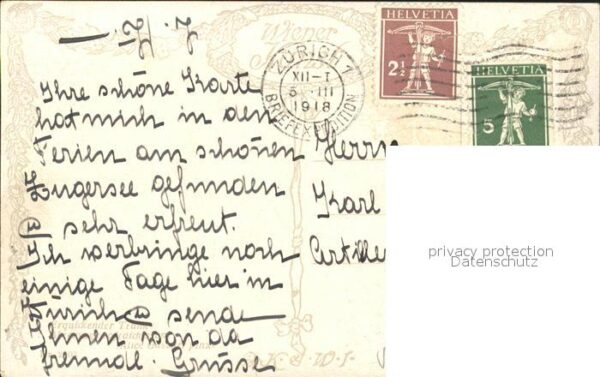 Wiener
HELVETIA
2½
HELVETIA
5
ZÜRICH 1
XII-1
5 III
1918
BRIEFEXPEDITION
Ihre schöne Karte
hat mich in den
Ferien am schönen
Zugersee gefunden
& sehr erfreut.
Ich verbringe noch
einige Tage hier in
Zürich & sende
Ihnen von da
freundl. Grüsse
Herrn
Karl
privacy protection
Datenschutz